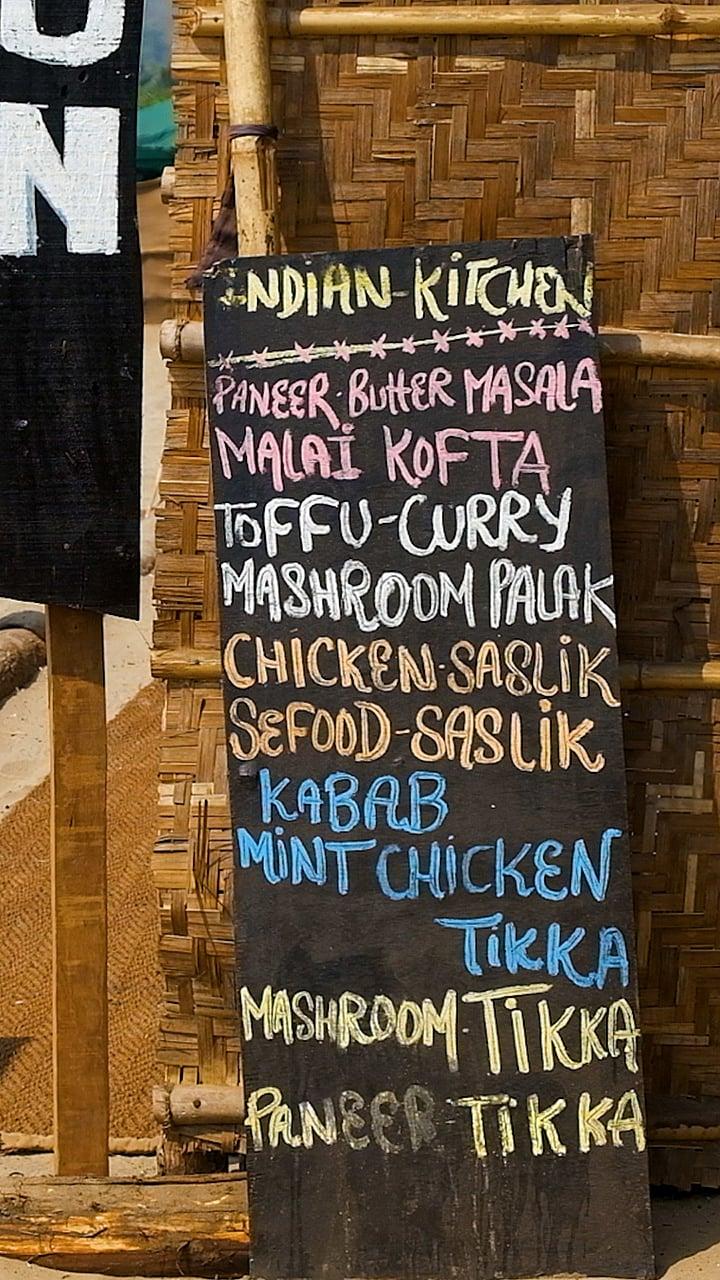 U
N
INDIAN-KITCHEN
PANEER-BUTTER MASALA
MALAI KOFTA
TOFFU-CURRY
MASHROOM PALAK
CHICKEN-SASLIK
SEFOOD-SASLIK
KABAB
MINT CHICKEN
TIKKA
MASHROOM-TIKKA
PANEER TIKKA